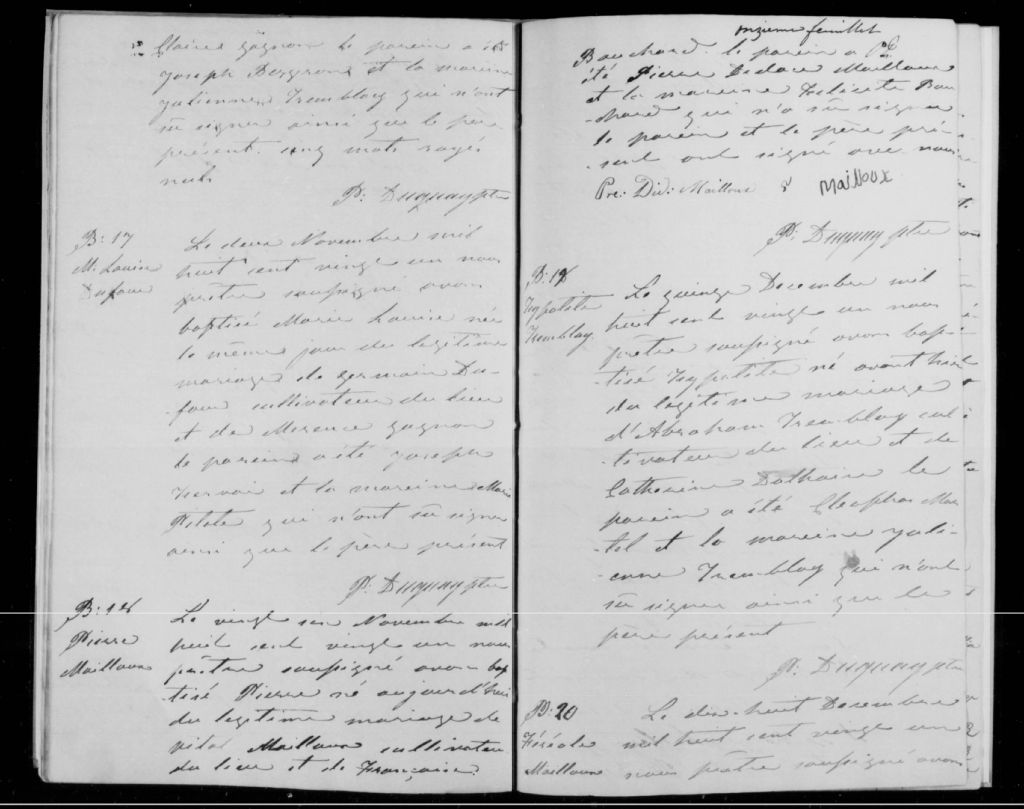 Claire gagnon le parein a été
Joseph Bergron et la mareine
Julienne Tremblay qui n'ont
sû signer ainsi que le père
présent. cinq mots rayés
nuls
P. Duguay ptre
B: 17
M. Louise
Dufour
Le deux Novembre mil
huit cent vingt un nous
prêtre soussigné avons
baptisé Marie Louise née
le même jour du legitime
mariage de germain Du-
-four cultivateur du lieu
et de Merence gagnon
le parein a été Joseph
et la mareine Marie
Pilote qui n'ont sû signer
ainsi que le père présent
P. Duguay ptre
B: 18
Pierre
Mailloux
Le vingt six Novembre mil
huit cent vingt un nous
prêtre soussigné avons bap
-tisé Pierre né aujourd'hui
du legitime mariage de
vital Mailloux cultivateur
du lieu et de Françoise
onzieme feuillet
P.D.
Bouchard. le parein a
été Pierre Dedace Mailloux
et la mareine Felicité Bou
-chard qui n'a sû signer
le parein et le père pré-
-sent ont signé avec nous
Pre: Did: Mailloux
Mailloux
P. Duguay ptre
B: 19
Hypolite
Tremblay
Le quinze Decembre mil
huit cent vingt un nous
prêtre soussigné avons bap-
-tisé Hypolite né avant hier
du legitime mariage
d'Abraham Tremblay cul
-tivateur du lieu et de
Catherine Dallaire le
parein a été Cleophas Mar
-tel et la mareine Juli-
-enne Tremblay qui n'ont
sû signer ainsi que le
père présent
P. Duguay ptre
B: 20
Mailloux
Le dix-huit Decembre
mil huit cent vingt un
nous prêtre soussigné avons